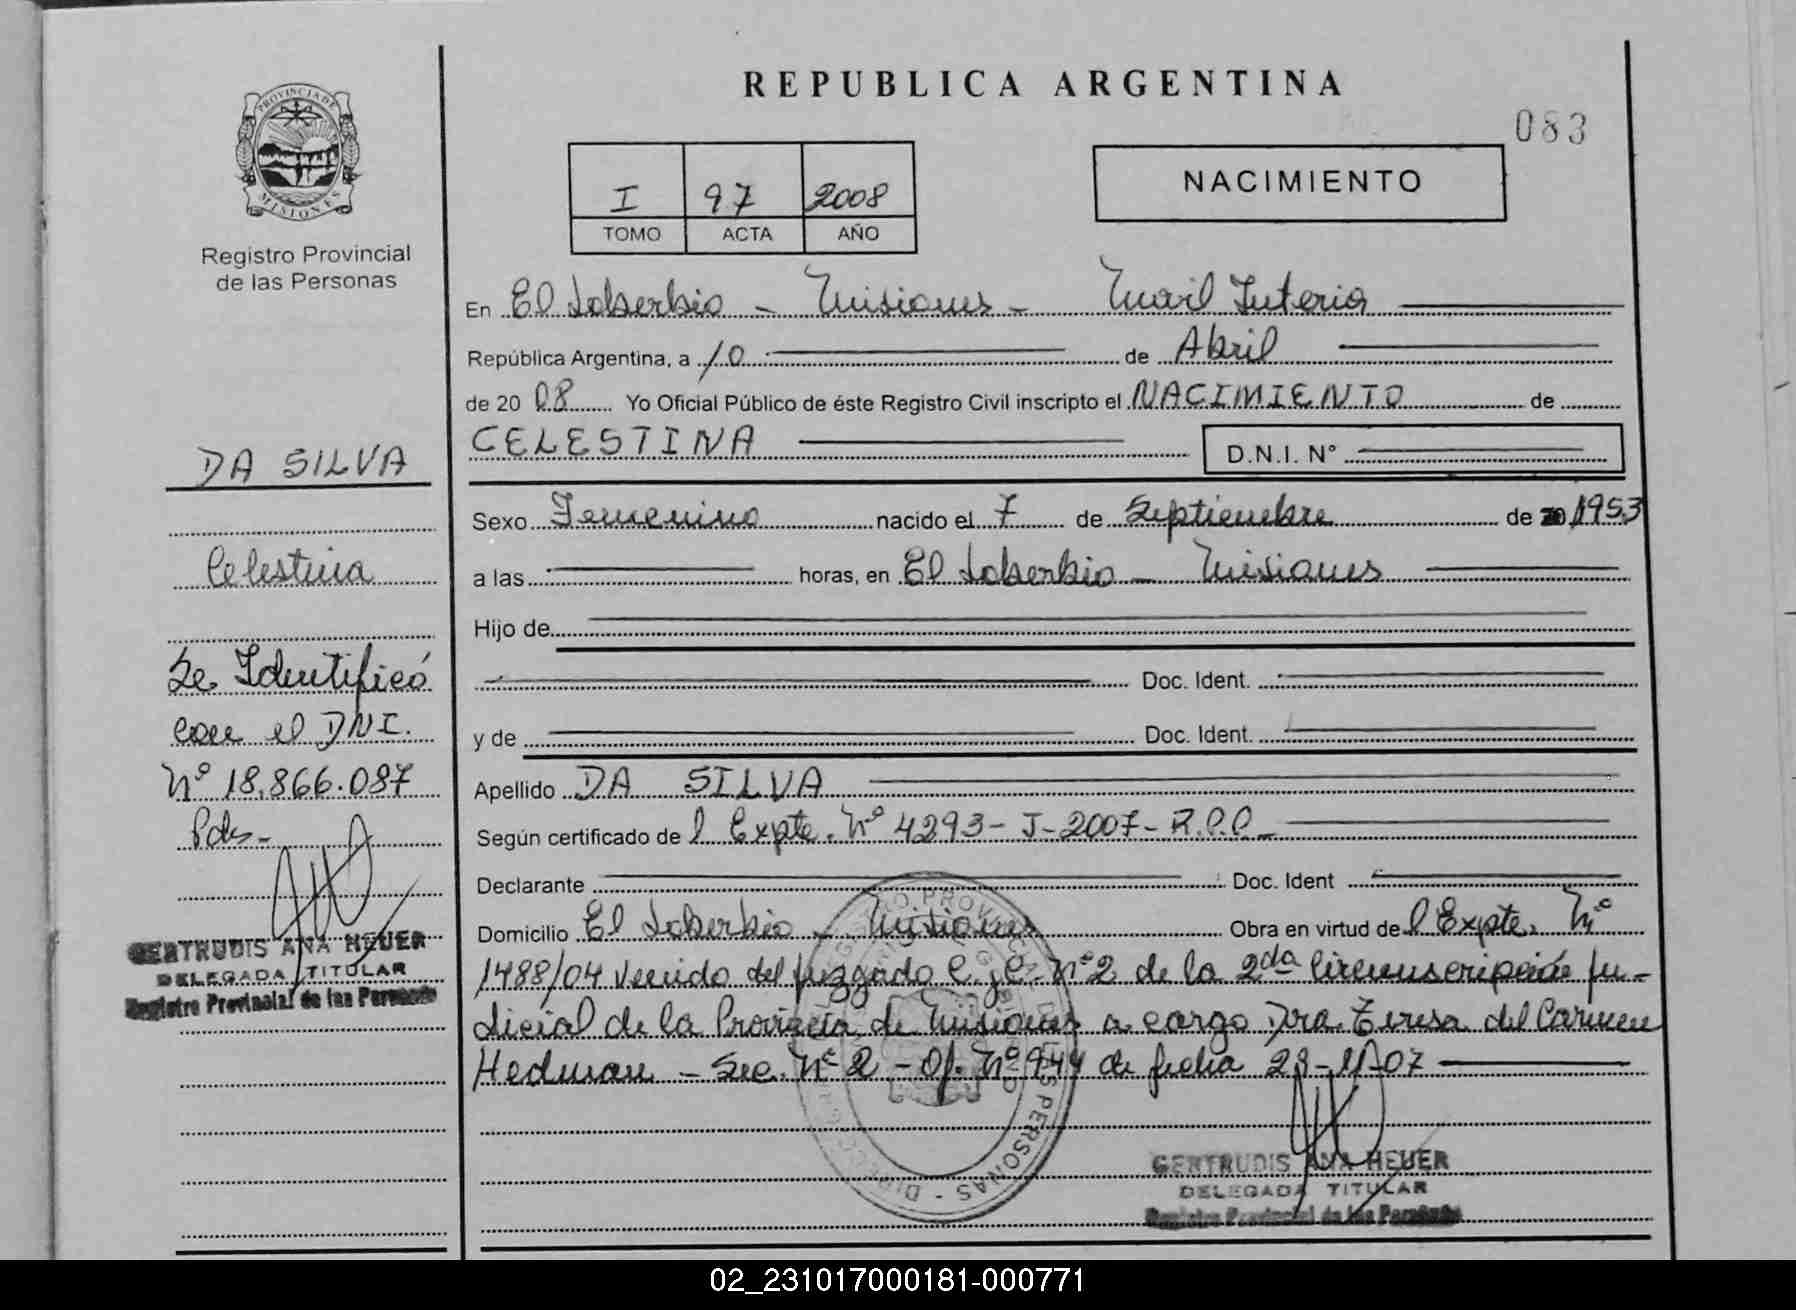 REPUBLICA ARGENTINA
083
PROVINCIA DE
MISIONES
Registro Provincial
de las Personas
I 97 2008
TOMO ACTA AÑO
NACIMIENTO
En El Soberbio - Misiones -
República Argentina, a 10 de Abril
de 20 08 Yo Oficial Público de éste Registro Civil inscripto el NACIMIENTO de
CELESTINA
D.N.I. N°
DA SILVA
Celestina
Se Identificó
con el DNI.
Nº 18.866.087
GERTRUDIS ANA HEUER
DELEGADA TITULAR
Registro Provincial de las Personas
Sexo Femenino nacido el 7 de Septiembre de 20 1953
a las horas, en El Soberbio - Misiones
Hijo de
Doc. Ident.
y de Doc. Ident.
Apellido DA SILVA
Según certificado de l Expte. Nº 4293-J-2007-R.P.P.
Declarante Doc. Ident
Domicilio El Soberbio - Misiones Obra en virtud de l Expte. Nº
1488/04 venido del Juzgado C. y C. Nº2 de la 2da Circunscripción Ju-
dicial de la Provincia de Misiones a cargo Dra. Teresa del Carmen
Hedman - Sec. Nº 2 - Of. Nº 944 de fecha 28-11-07
GERTRUDIS ANA HEUER
DELEGADA TITULAR
Registro Provincial de las Personas
02_231017000181-000771